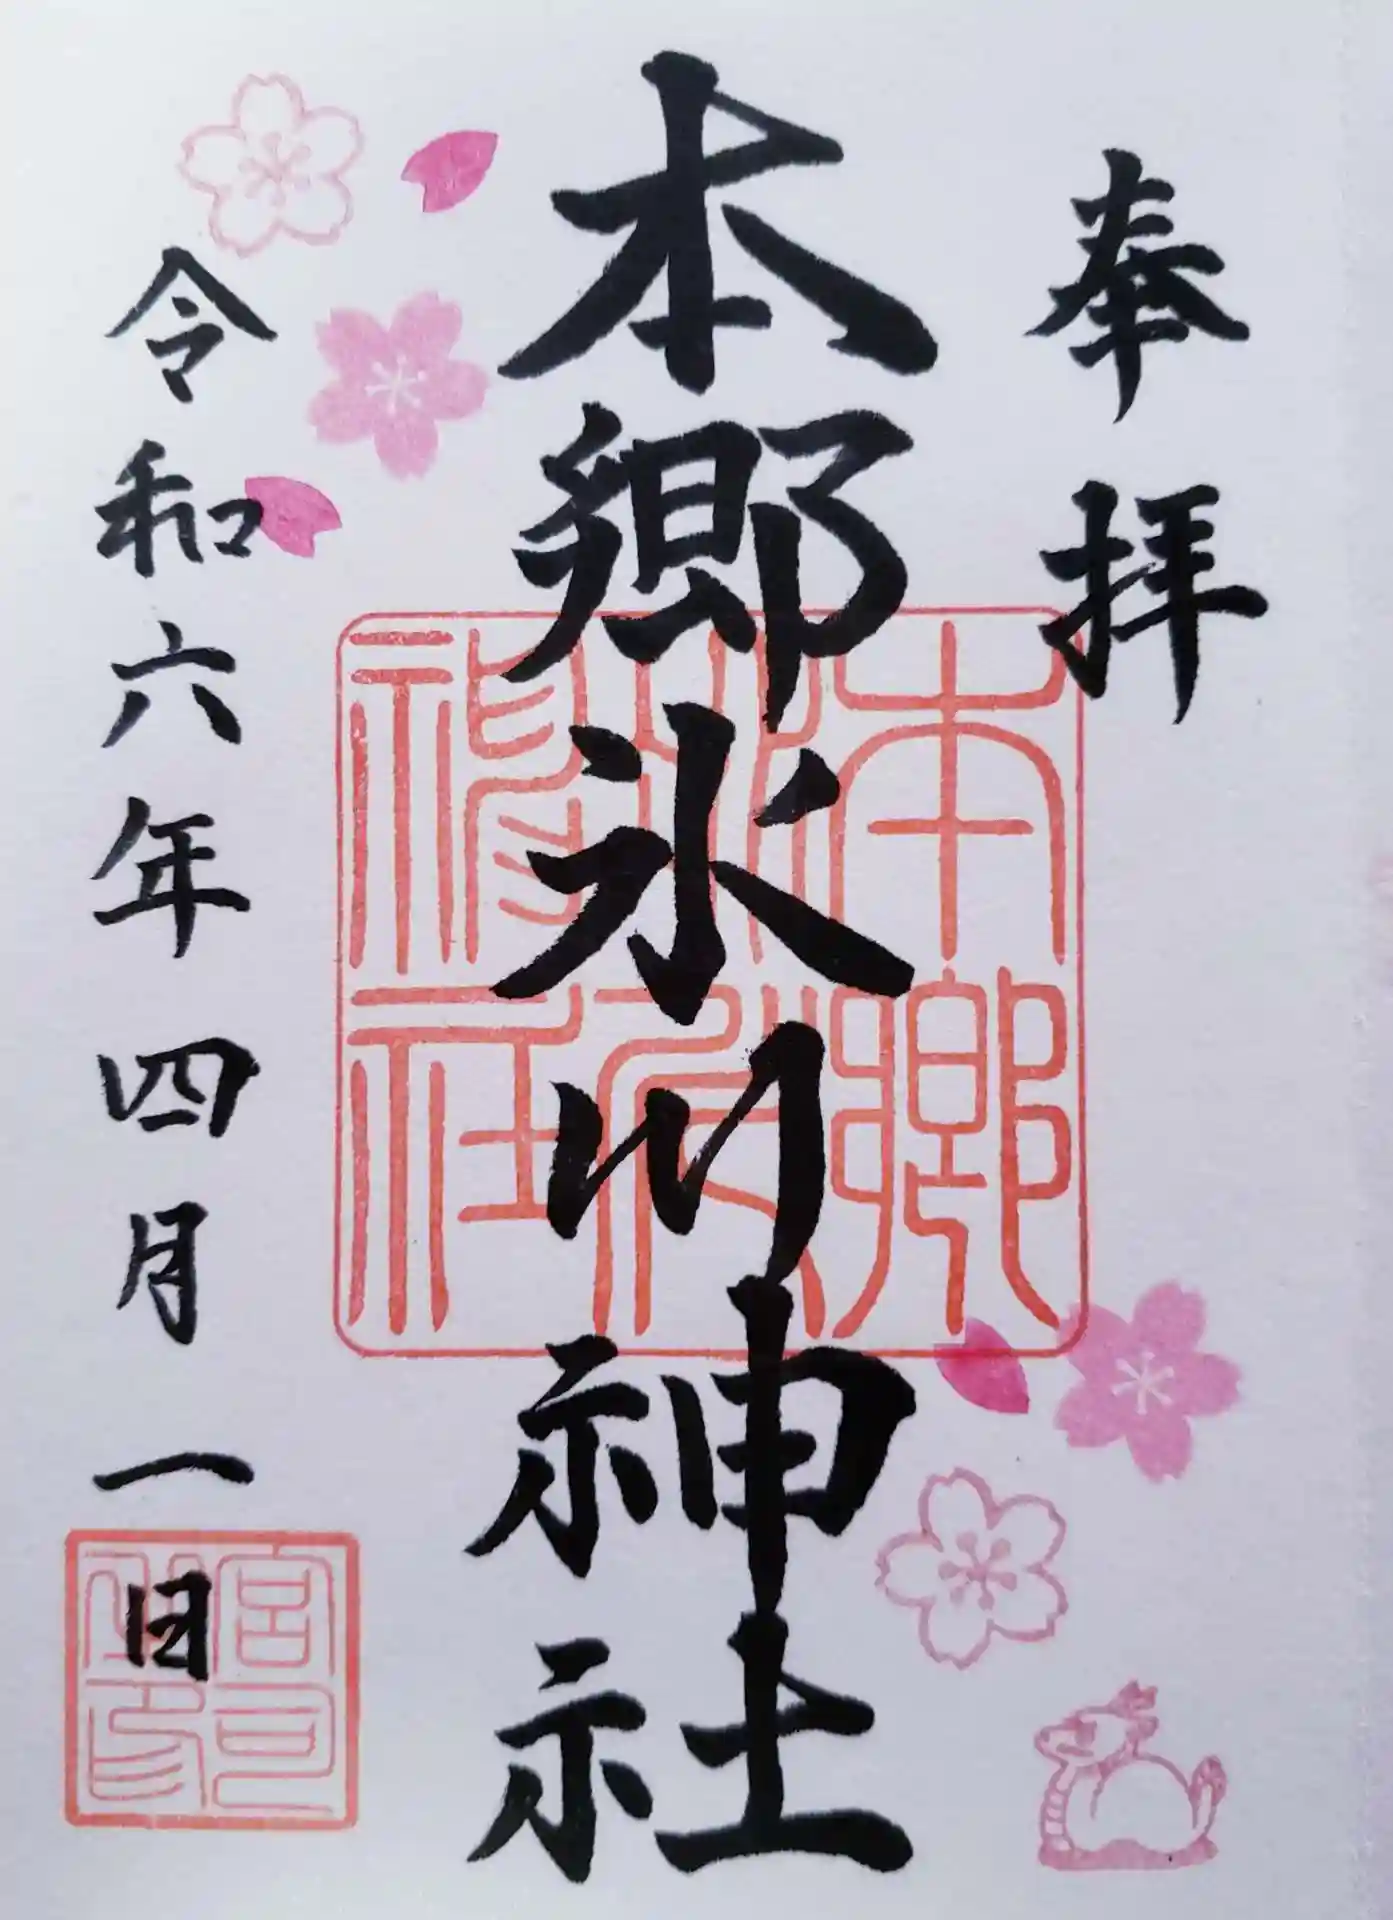 奉拝
本郷氷川神社
令和六年四月一日
本郷
氷川
神社
宮司
之印